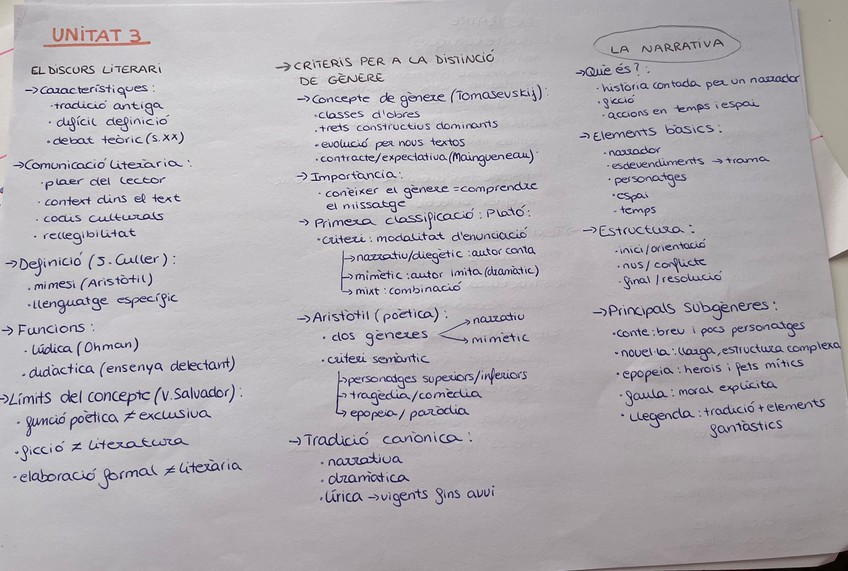 UNITAT 3
EL DISCURS LITERARI
→Característiques:
·tradició antiga
·difícil definició
·debat teòric (s.XX)
→Comunicació literària:
·plaer del lector
·context dins el text
·codis culturals
·rellegibilitat
→Definició (J. Culler):
·mimesi (Aristòtil)
·llenguatge específic
→Funcions:
·lúdica (Ohman)
·didàctica (ensenya delectant)
→Límits del concepte (V. Salvador):
·funció poètica ≠ exclusiva
·ficció ≠ literatura
·elaboració formal ≠ literària
→CRITERIS PER A LA DISTINCIÓ
DE GÈNERE
→Concepte de gènere (Tomasevskij):
·classes d'obres
·trets constructius dominants
·evolució per nous textos
·contracte/expectativa (Maingueneau)
→Importància:
·conèixer el gènere = comprendre
el missatge
→Primera classificació: Plató:
·criteri: modalitat d'enunciació
→narratiu/diegètic: autor conta
→mimètic: autor imita (dramàtic)
→mixt: combinació
→Aristòtil (poètica):
·dos gèneres → narratiu
→ mimètic
·criteri semàntic
→personatges superiors/inferiors
→tragèdia/comèdia
→epopeia/paròdia
→Tradició canònica:
·narrativa
·dramàtica
·lírica → vigents fins avui
LA NARRATIVA
→Què és?:
·història contada per un narrador
·ficció
·accions en temps i espai
→Elements bàsics:
·narrador
·esdeveniments → trama
·personatges
·espai
·temps
→Estructura:
·inici/orientació
·nus/conflicte
·final/resolució
→Principals subgèneres:
·conte: breu i pocs personatges
·novel·la: llarga, estructura complexa
·epopeia: herois i fets mítics
·faula: moral explícita
·llegenda: tradició + elements
fantàstics